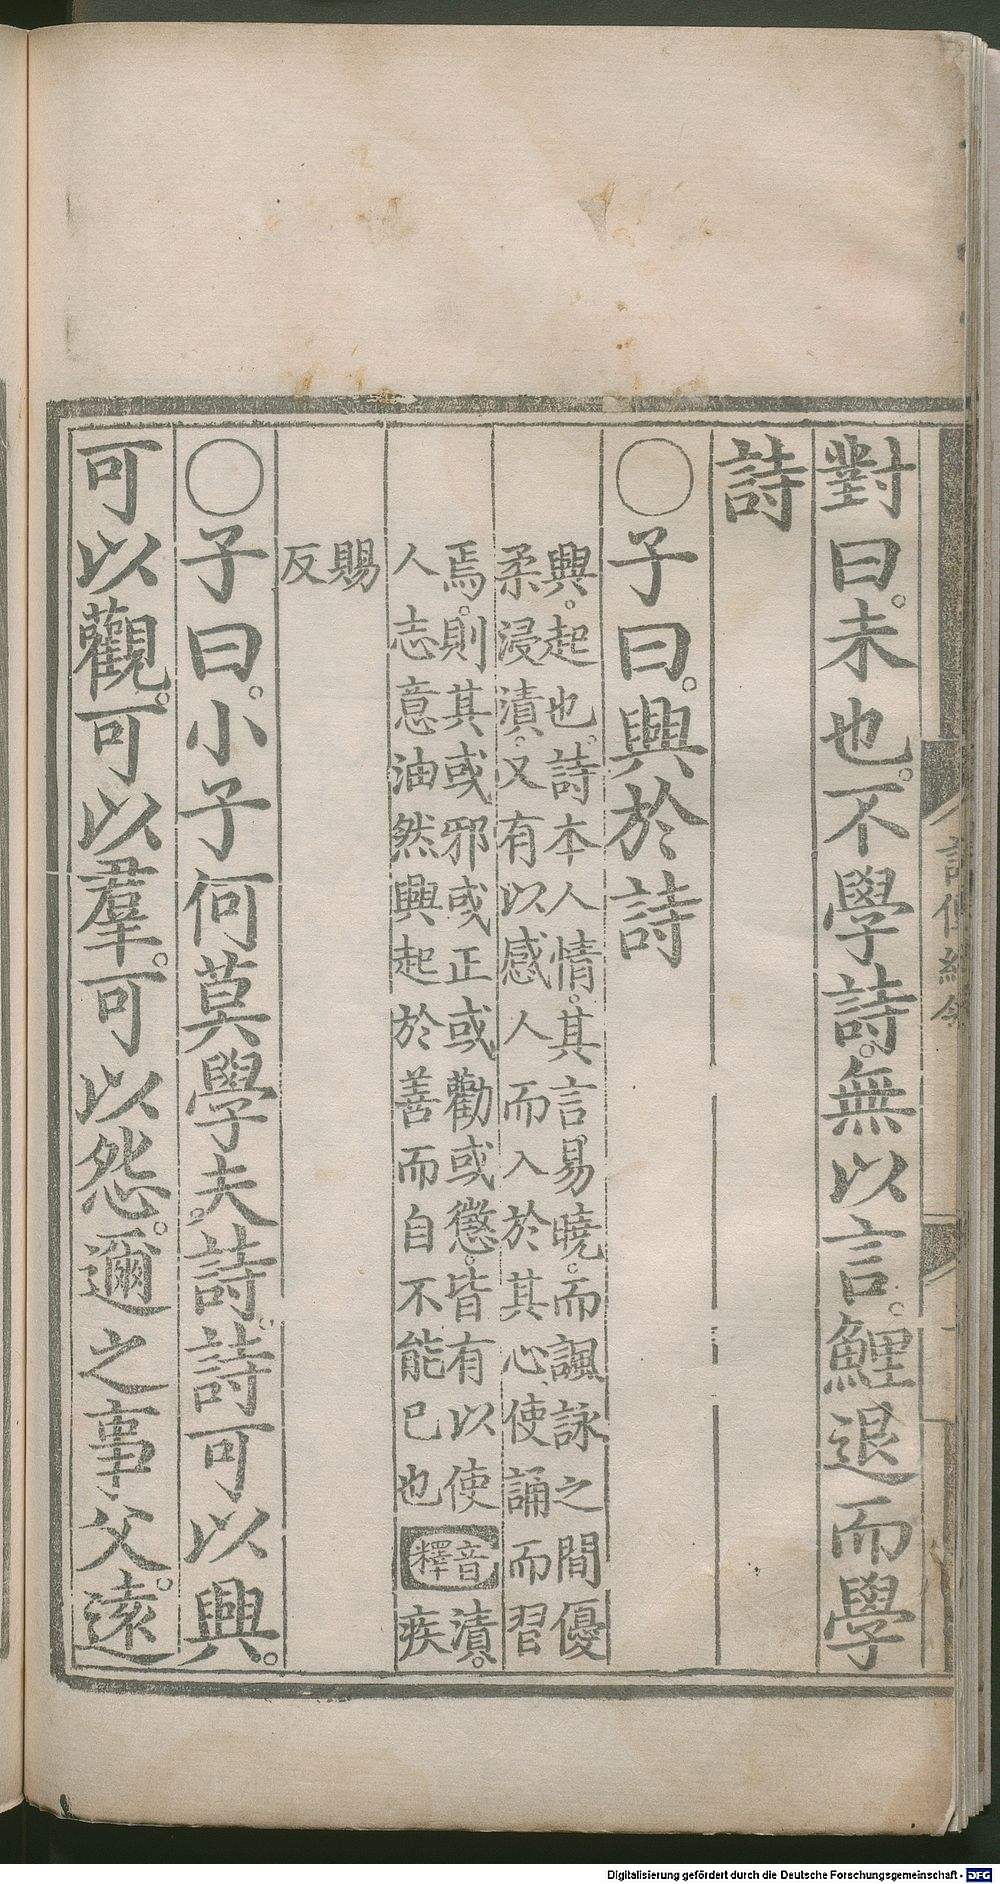 對曰。未也。不學詩。無以言。鯉退而學
詩
○子曰。興於詩
興。起也。詩本人情。其言易曉。而諷詠之間優
柔浸漬。又有以感人而入於其心。使誦而習
焉。則其或邪或正或勸或懲。皆有以使
人志意油然興起於善而自不能已也
音釋
漬。疾
賜
反
○子曰。小子何莫學夫。詩。詩可以興。
可以觀。可以羣。可以怨。邇之事父。遠
Digitalisierung gefördert durch die Deutsche Forschungsgemeinschaft - DFG